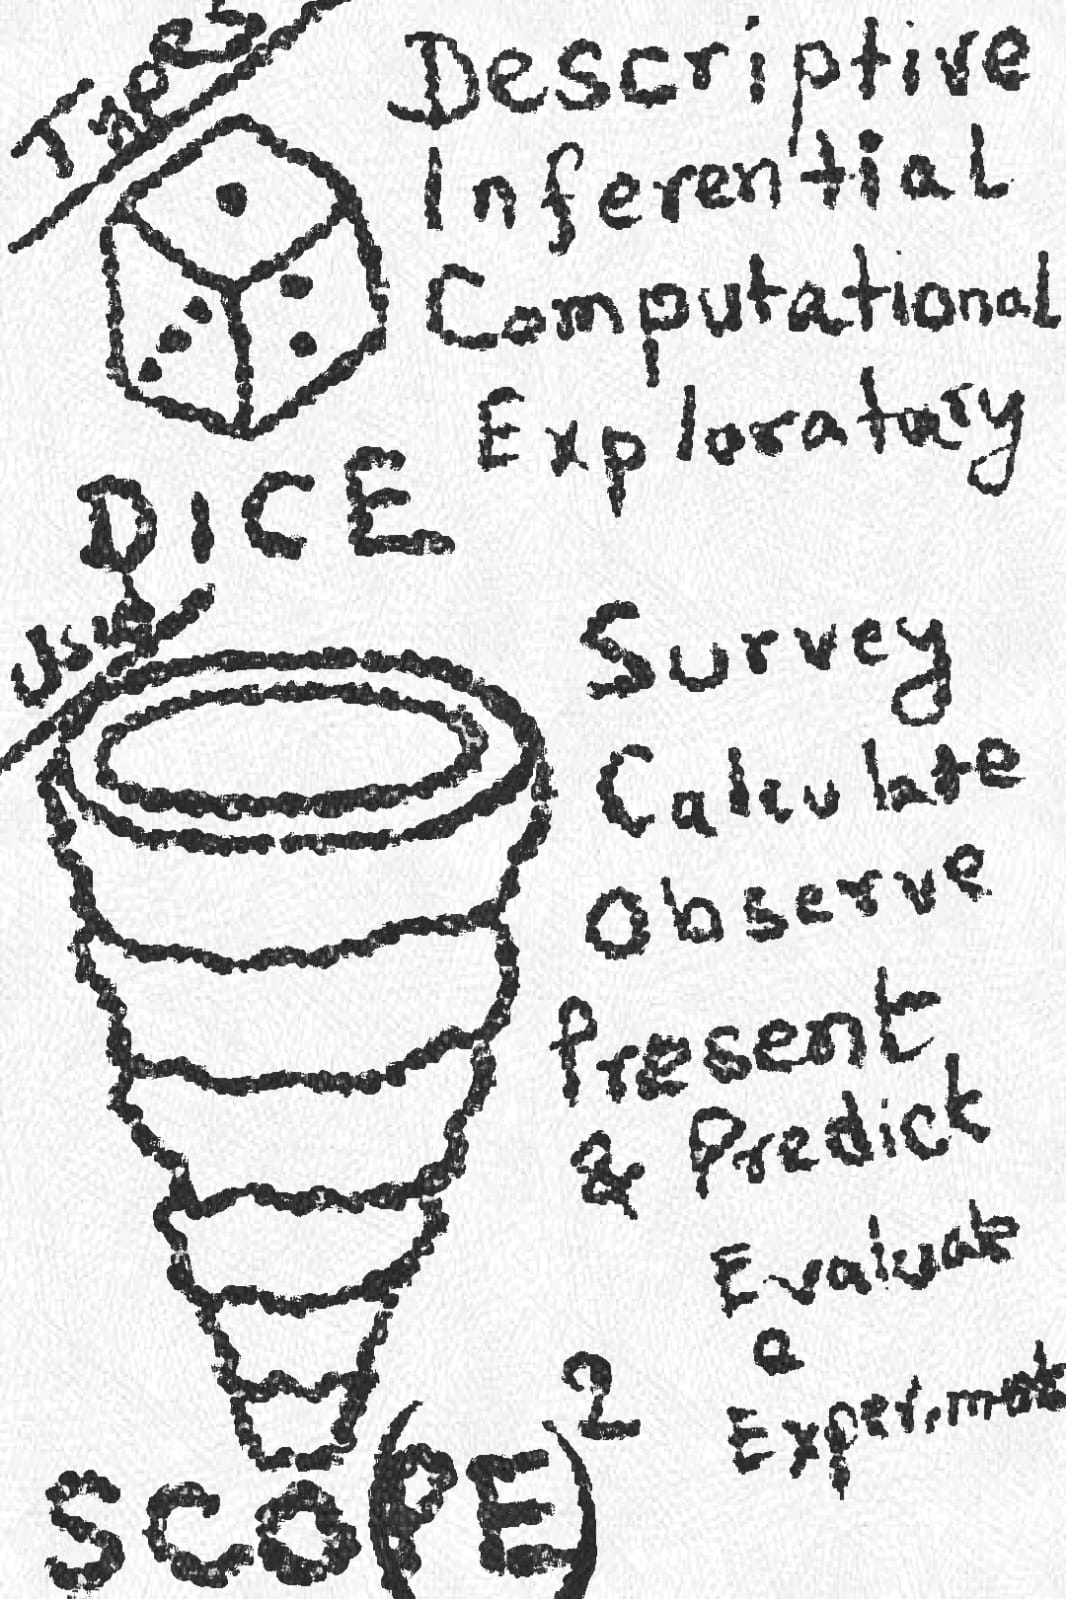 Types
Descriptive
Inferential
Computational
Exploratory
DICE
Uses
Survey
Calculate
Observe
Present
& Predict
Evaluate
a
Experiment
SCO(PE)²